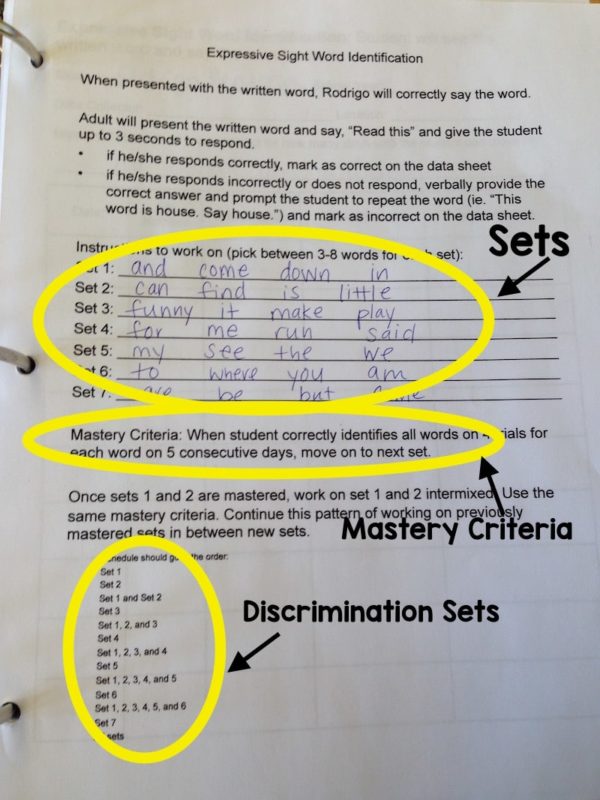 Expressive Sight Word Identification
When presented with the written word, Rodrigo will correctly say the word.
Adult will present the written word and say, “Read this” and give the student
up to 3 seconds to respond.
• if he/she responds correctly, mark as correct on the data sheet
• if he/she responds incorrectly or does not respond, verbally provide the
correct answer and prompt the student to repeat the word (ie. “This
word is house. Say house.”) and mark as incorrect on the data sheet.
to work on (pick between 3-8 words for set):
Sets
Set 1: and come down in
Set 2: can find is little
Set 3: funny it make play
Set 4: for me run said
Set 5: my see the we
6: to where you am
Set 7: are be but
Mastery Criteria: When student correctly identifies all words on for
each word on 5 consecutive days, move on to next set.
Once sets 1 and 2 are mastered, work on set 1 and 2 intermixed. Use the
same mastery criteria. Continue this pattern of working on previously
mastered sets in between new sets.
Mastery Criteria
the order:
Set 1
Set 2
Set 1 and Set 2
Set 3
Set 1, 2, and 3
Set 4
Set 1, 2, 3, and 4
Set 5
Set 1, 2, 3, 4, and 5
Set 6
Set 1, 2, 3, 4, 5, and 6
Set 7
sets
Discrimination Sets